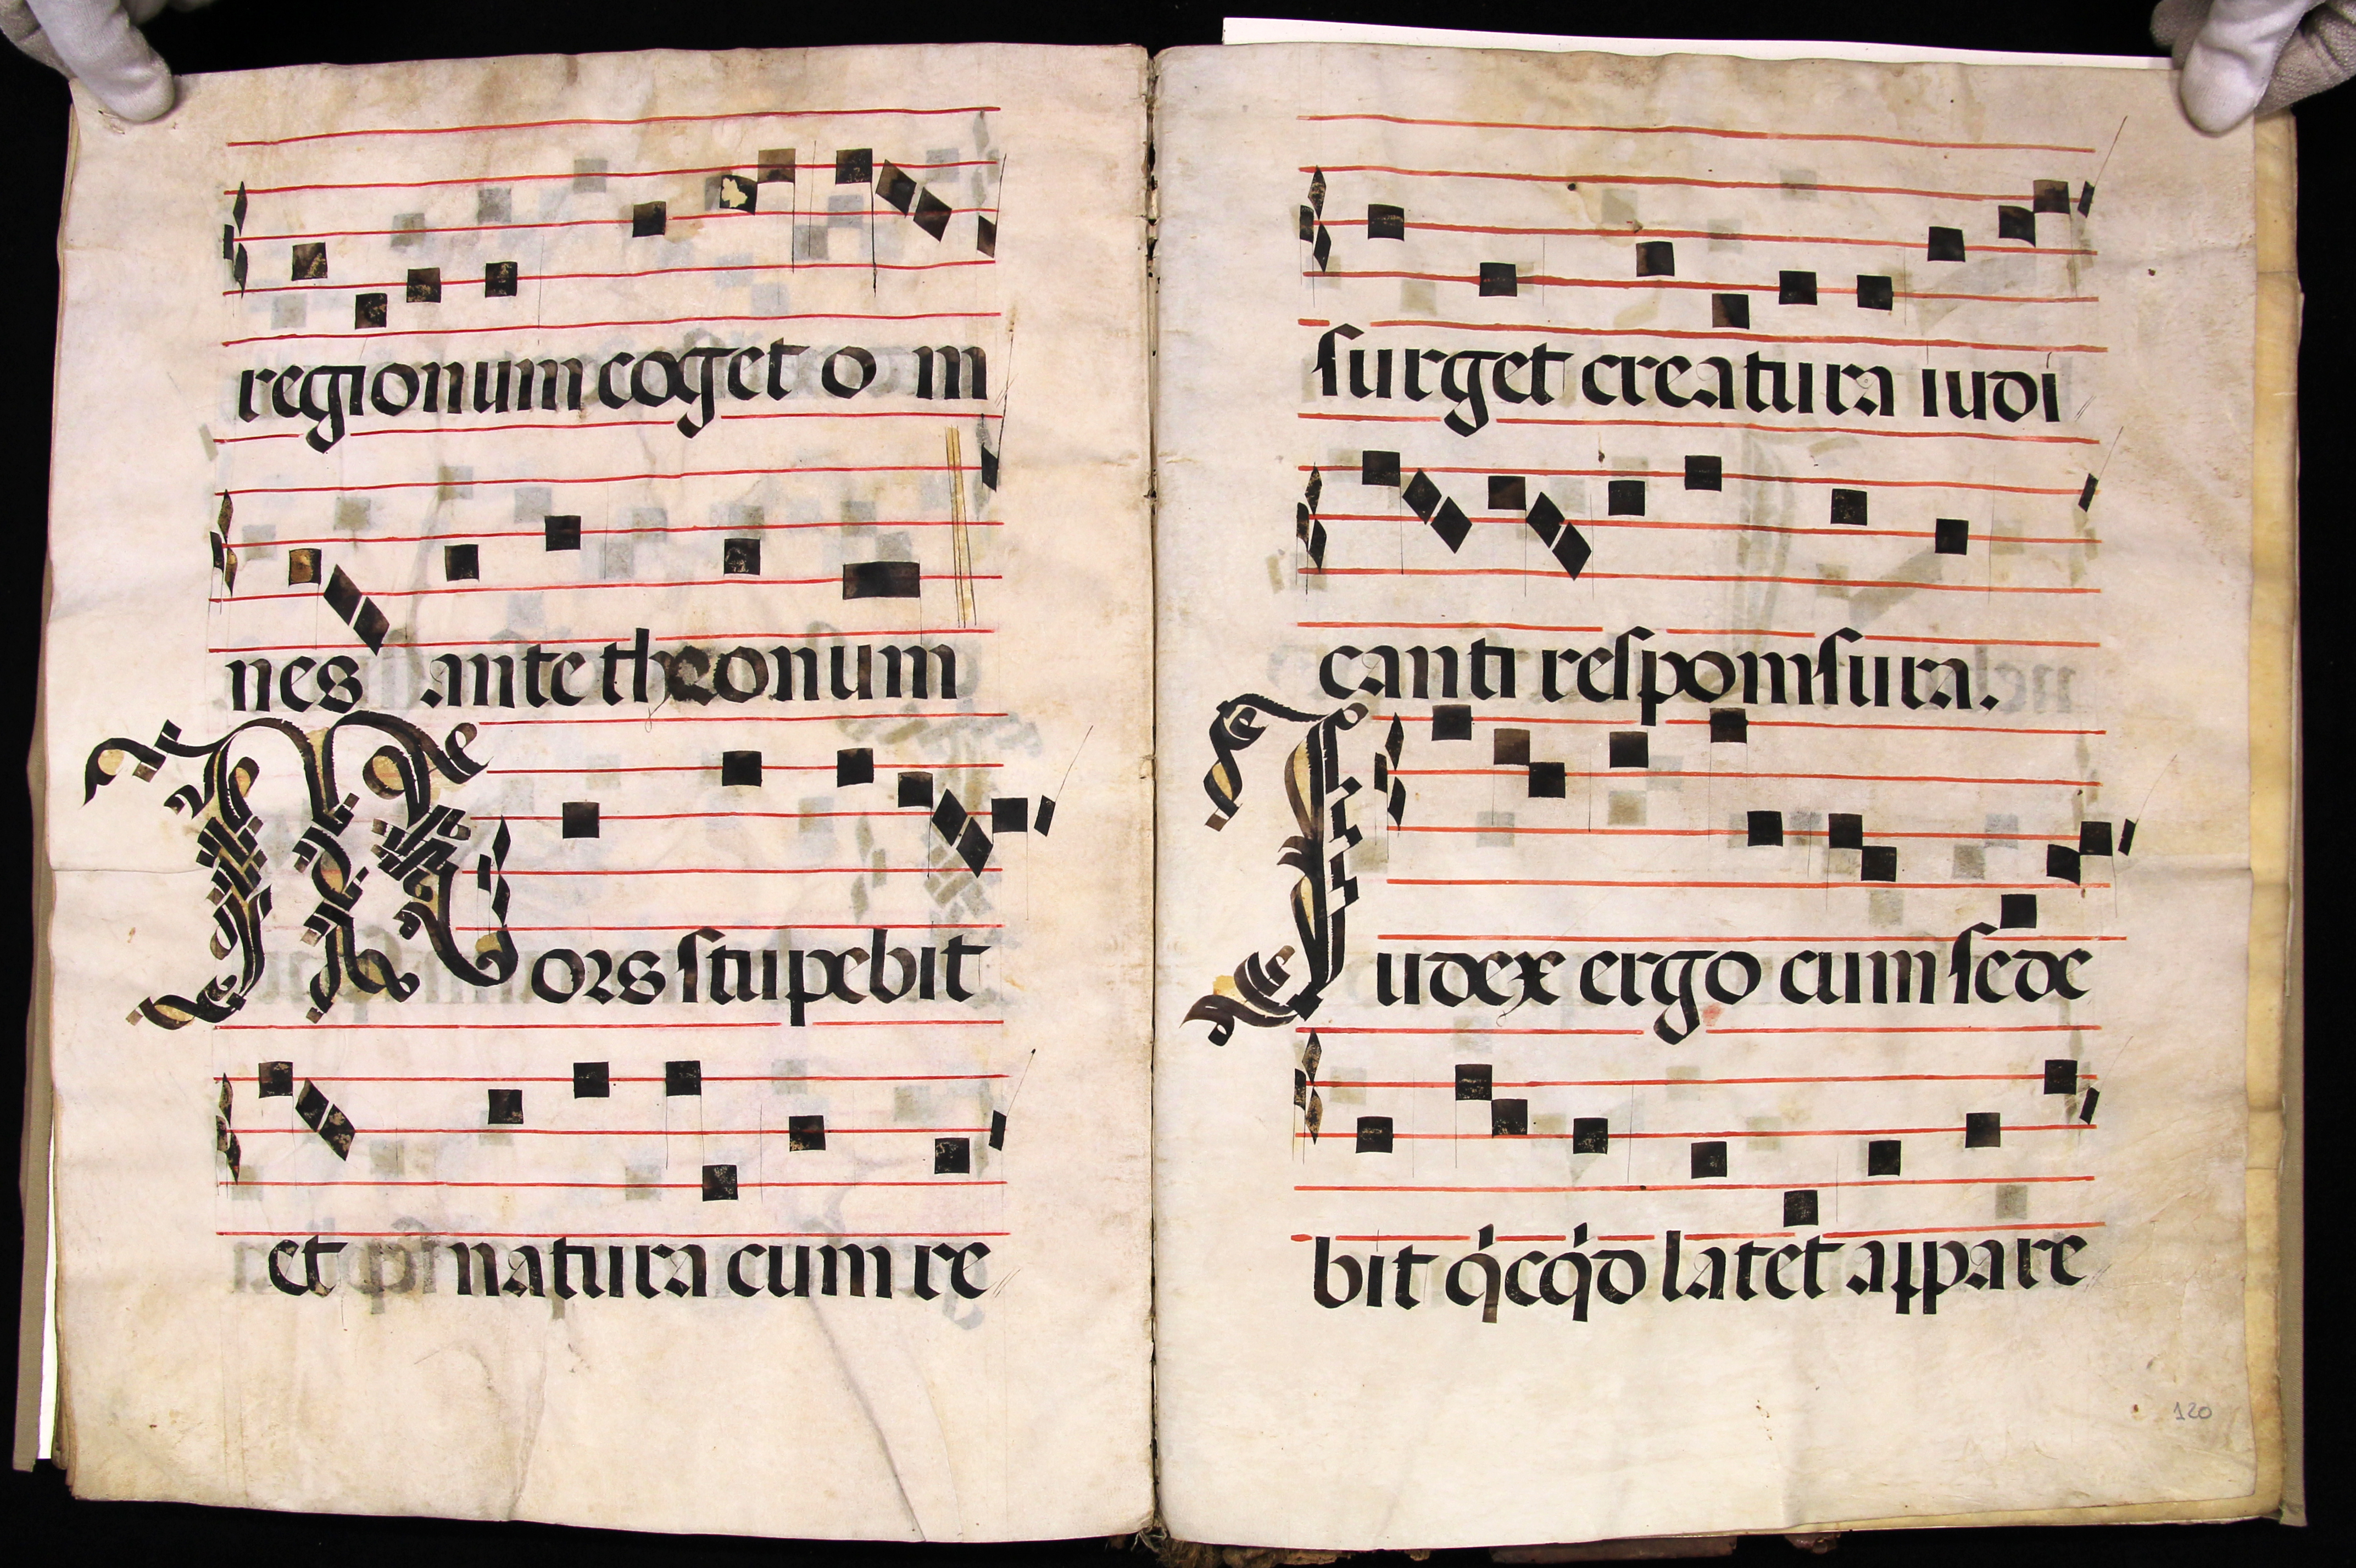 regionum coget o m
nes ante theonum
Mors stupebit
et natura cum re
surget creatura iudi
canti respomsura.
Iudex ergo cum sede
bit q̇cq̇d latet appare
120